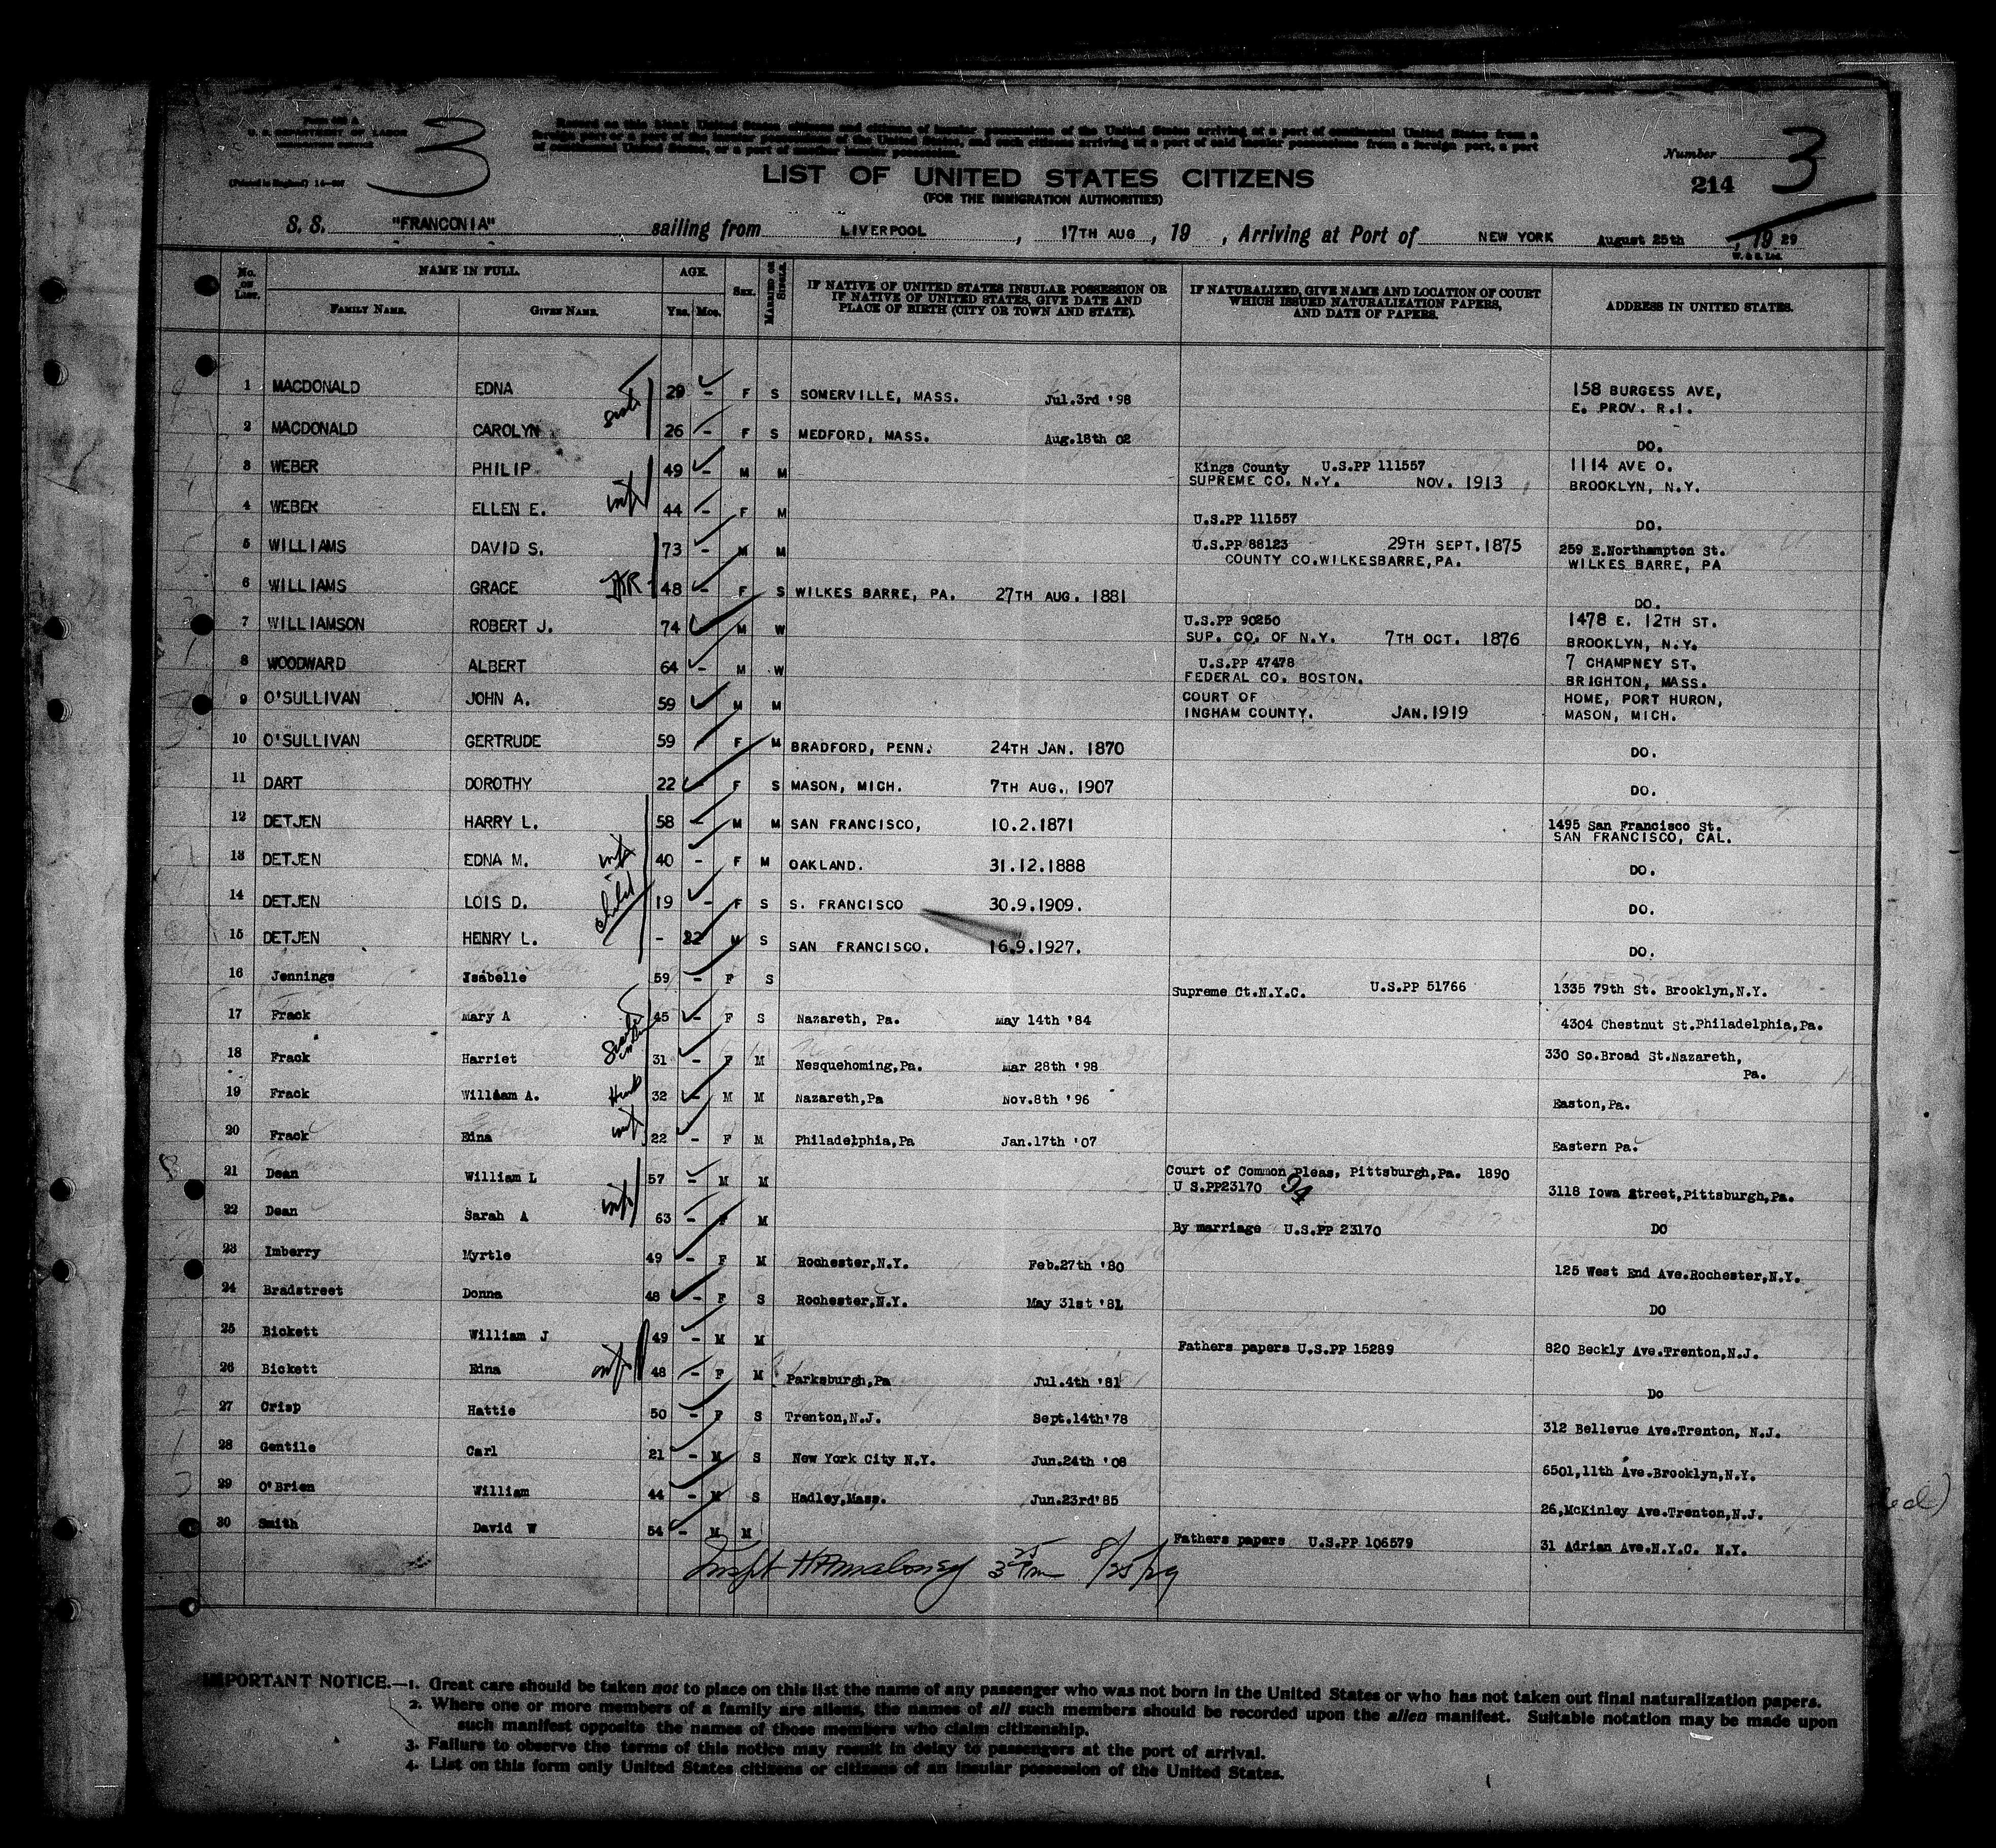 Form 630 A
U. S. DEPARTMENT OF LABOR
IMMIGRATION SERVICE
(Printed in England) 14-207
3
Record on this blank United States citizens and citizens of insular possessions of the United States arriving at a port of continental United States from a
foreign port or a port of the insular possessions of the United States, and such citizens arriving at a port of said insular possessions from a foreign port, a port
of continental United States, or a port of another insular possession.
LIST OF UNITED STATES CITIZENS
(FOR THE IMMIGRATION AUTHORITIES)
Number 3
214
S. S. "FRANCONIA" sailing from LIVERPOOL, 17TH AUG, 19 , Arriving at Port of NEW YORK August 25th, 19 29
W. & S. Ltd.
No. ON LIST. NAME IN FULL. AGE. Sex. MARRIED OR SINGLE. IF NATIVE OF UNITED STATES INSULAR POSSESSION OR IF NATIVE OF UNITED STATES, GIVE DATE AND PLACE OF BIRTH (CITY OR TOWN AND STATE). IF NATURALIZED, GIVE NAME AND LOCATION OF COURT WHICH ISSUED NATURALIZATION PAPERS, AND DATE OF PAPERS. ADDRESS IN UNITED STATES.
FAMILY NAME. GIVEN NAME. Yrs. Mos.
1 MACDONALD EDNA 29 - F S SOMERVILLE, MASS. Jul.3rd '98 158 BURGESS AVE,
E. PROV. R.I.
2 MACDONALD CAROLYN 26 - F S MEDFORD, MASS. Aug.18th 02 DO.
3 WEBER PHILIP 49 - M M Kings County U.S.PP 111557 1114 AVE O.
SUPREME CO. N.Y. NOV. 1913 BROOKLYN, N.Y.
4 WEBER ELLEN E. wife 44 - F M U.S.PP 111557 DO.
5 WILLIAMS DAVID S. 73 - M M U.S.PP 88123 29TH SEPT.1875 259 E.Northampton St.
COUNTY CO.WILKESBARRE,PA. WILKES BARRE, PA
6 WILLIAMS GRACE 48 - F S WILKES BARRE, PA. 27TH AUG. 1881 DO.
7 WILLIAMSON ROBERT J. 74 - M W U.S.PP 90250 1478 E. 12TH ST.
SUP. CO. OF N.Y. 7TH OCT. 1876 BROOKLYN, N.Y.
8 WOODWARD ALBERT 64 - M W U.S.PP 47478 7 CHAMPNEY ST.
FEDERAL CO. BOSTON. BRIGHTON, MASS.
9 O'SULLIVAN JOHN A. 59 M M COURT OF HOME, PORT HURON,
INGHAM COUNTY. JAN.1919 MASON, MICH.
10 O'SULLIVAN GERTRUDE 59 F M BRADFORD, PENN. 24TH JAN. 1870 DO.
11 DART DOROTHY 22 - F S MASON, MICH. 7TH AUG. 1907 DO.
12 DETJEN HARRY L. 58 - M M SAN FRANCISCO, 10.2.1871 1495 San Francisco St.
SAN FRANCISCO, CAL.
13 DETJEN EDNA M. wife 40 - F M OAKLAND. 31.12.1888 DO.
14 DETJEN LOIS D. child 19 - F S S. FRANCISCO 30.9.1909. DO.
15 DETJEN HENRY L. - 22 M S SAN FRANCISCO. 16.9.1927. DO.
16 Jennings Isabelle 59 - F S Supreme Ct.N.Y.C. U.S.PP 51766 1335 79th St. Brooklyn,N.Y.
17 Frack Mary A 45 - F S Nazareth, Pa. May 14th '84 4304 Chestnut St.Philadelphia,Pa.
18 Frack Harriet 31 - F M Nesquehoming,Pa. Mar 28th '98 330 So.Broad St.Nazareth,
Pa.
19 Frack William A. 32 - M M Nazareth,Pa Nov.8th '96 Easton,Pa.
20 Frack Edna wife 22 - F M Philadelphia,Pa Jan.17th '07 Eastern Pa.
21 Dean William L 57 - M M Court of Common Pleas, Pittsburgh,Pa. 1890
U S.PP23170 94 3118 Iowa Street,Pittsburgh,Pa.
22 Dean Sarah A wife 63 - F M By marriage U.S.PP 23170 DO
23 Imberry Myrtle 49 - F M Rochester,N.Y. Feb.27th '80 125 West End Ave.Rochester,N.Y.
24 Bradstreet Donna 48 - F S Rochester,N.Y. May 31st '81 DO
25 Bickett William J 49 - M M Fathers papers U.S.PP 15289 820 Beckly Ave.Trenton,N.J.
26 Bickett Edna wife 48 - F M Parksburgh,Pa Jul.4th '81 Do
27 Crisp Hattie 50 - F S Trenton,N.J. Sept.14th'78 312 Bellevue Ave.Trenton, N.J.
28 Gentile Carl 21 - M S New York City N.Y. Jun.24th '08 6501,11th Ave.Brooklyn,N.Y.
29 O'Brien William 44 - M S Hadley,Mass. Jun.23rd'85 26,McKinley Ave.Trenton,N.J.
30 Smith David W 54 - M M Fathers papers U.S.PP 106579 31 Adrian Ave.N.Y.C. N.Y.
Inspt Maloney 3 25 Pm 8/25/29
IMPORTANT NOTICE.—1. Great care should be taken not to place on this list the name of any passenger who was not born in the United States or who has not taken out final naturalization papers.
2. Where one or more members of a family are aliens, the names of all such members should be recorded upon the alien manifest. Suitable notation may be made upon
such manifest opposite the names of those members who claim citizenship.
3. Failure to observe the terms of this notice may result in delay to passengers at the port of arrival.
4. List on this form only United States citizens or citizens of an insular possession of the United States.